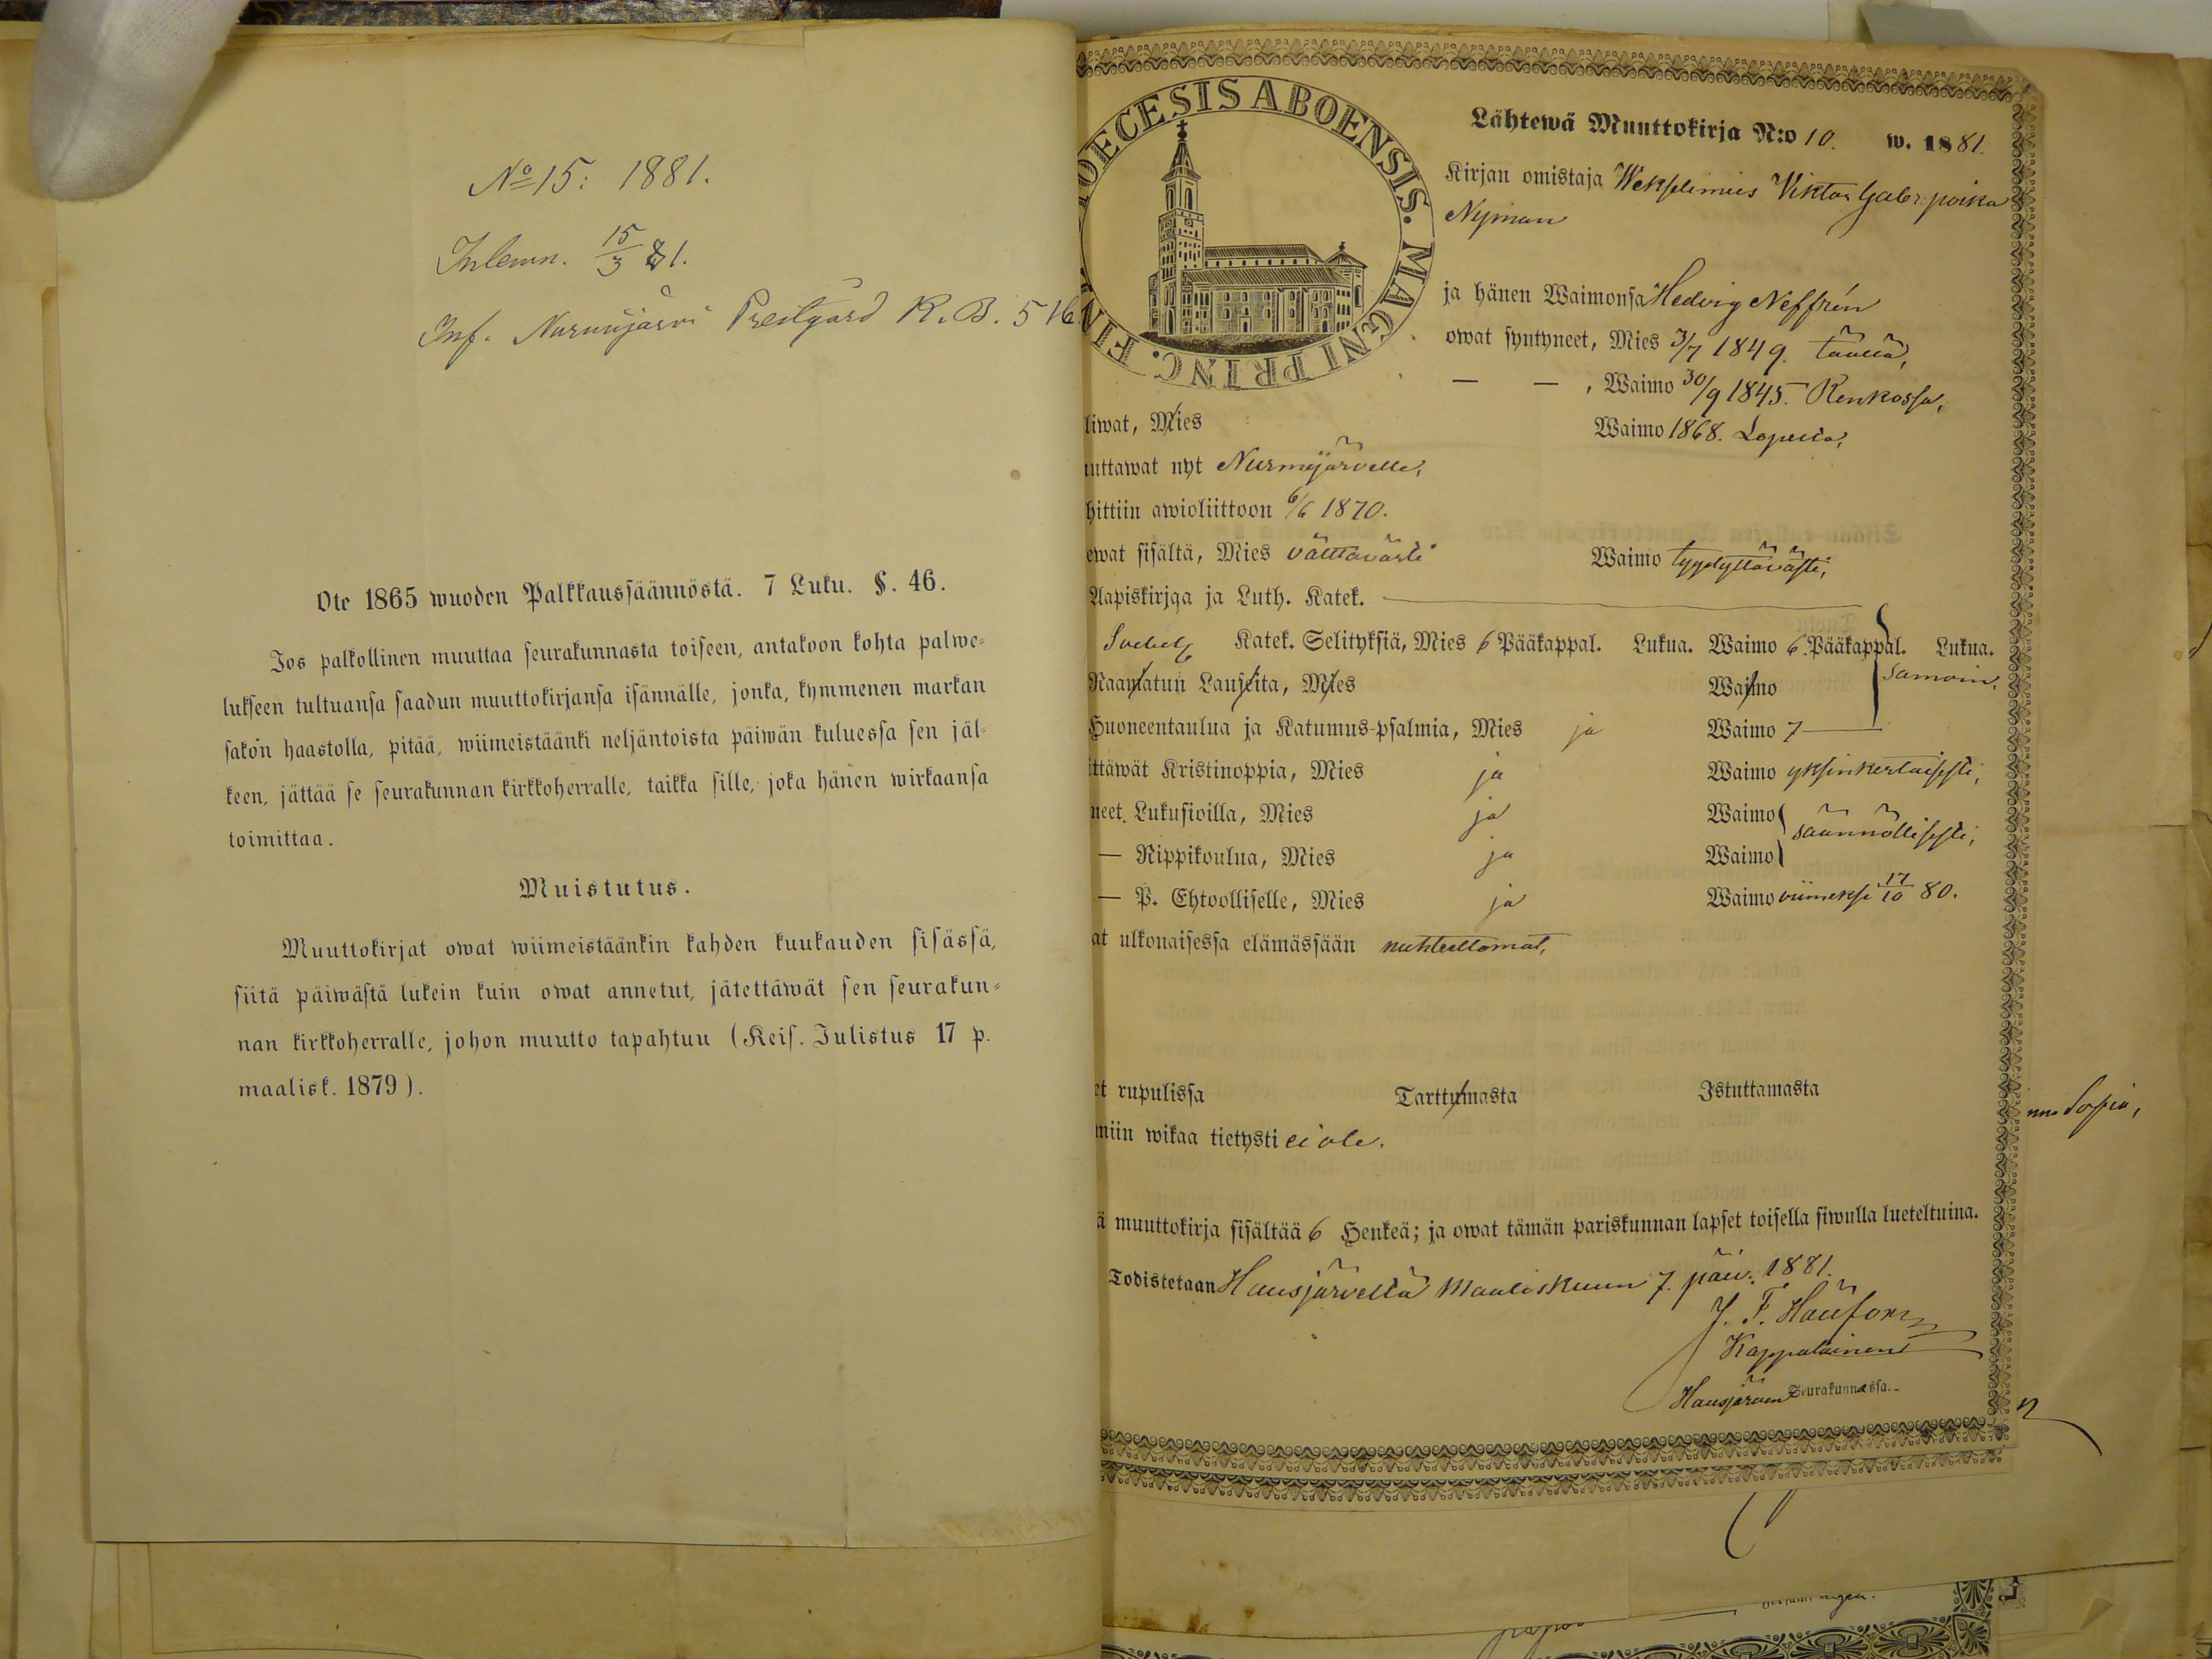 No 15: 1881.
Inlemn. 15/3 81.
Inf. Nurmijärvi Prestgård K. B. 516
Ote 1865 wuoden Palkkaussäännöstä. 7 Luku. §. 46.
Jos palkollinen muuttaa seurakunnasta toiseen, antakoon kohta palwe-
lukseen tultuansa saadun muuttokirjansa isännälle, jonka, kymmenen markan
sakon haastolla, pitää, wiimeistäänki neljäntoista päiwän kuluessa sen jäl-
keen, jättää se seurakunnan kirkkoherralle, taikka sille, joka hänen wirkaansa
toimittaa.
Muistutus.
Muuttokirjat owat wiimeistäänkin kahden kuukauden sisässä,
siitä päiwästä lukein kuin owat annetut, jätettäwät sen seurakun-
nan kirkkoherralle, johon muutto tapahtuu (Keis. Julistus 17 p.
maalisk. 1879).
OECESIS ABOENSIS. MAGNI PRINC. FIN
Lähtewä Muuttokirja N:o 10. w. 1881.
Kirjan omistaja Wekselimies Viktor Gabr. poika
Nyman
ja hänen Waimonsa Hedvig Neffrén
owat syntyneet, Mies 3/7 1849. täällä,
— — , Waimo 30/9 1845. Renkossa,
liwat, Mies Waimo 1868. Lopelta,
uttawat nyt Nurmijärvelle,
hittiin awioliittoon 6/6 1870.
ewat sisältä, Mies välttävästi Waimo tyydyttävästi,
Aapiskirjaa ja Luth. Katek.
Svebel. Katek. Selityksiä, Mies 6 Pääkappal. Lukua. Waimo 6. Pääkappal. Lukua.
Raamatun Lauseita, Mies Waimo samoin,
Huoneentaulua ja Katumus-psalmia, Mies ja Waimo 7
ittäwät Kristinoppia, Mies ja Waimo yksinkertaisesti,
neet. Lukusioilla, Mies ja Waimo säännöllisesti,
— Rippikoulua, Mies ja Waimo
— P. Ehtoolliselle, Mies ja Waimo viimeksi 17/10 80.
at ulkonaisessa elämässään nuhteettomat,
et rupulissa Tarttumasta Istuttamasta
miin wikaa tietysti ei ole.
Sofia,
ä muuttokirja sisältää 6 Henkeä; ja owat tämän pariskunnan lapset toisella siwulla lueteltuina.
Todistetaan Hausjärvellä Maaliskuun 7. päiv. 1881.
J. F. Häufors
Kappalainen
Hausjärven Seurakunnassa.